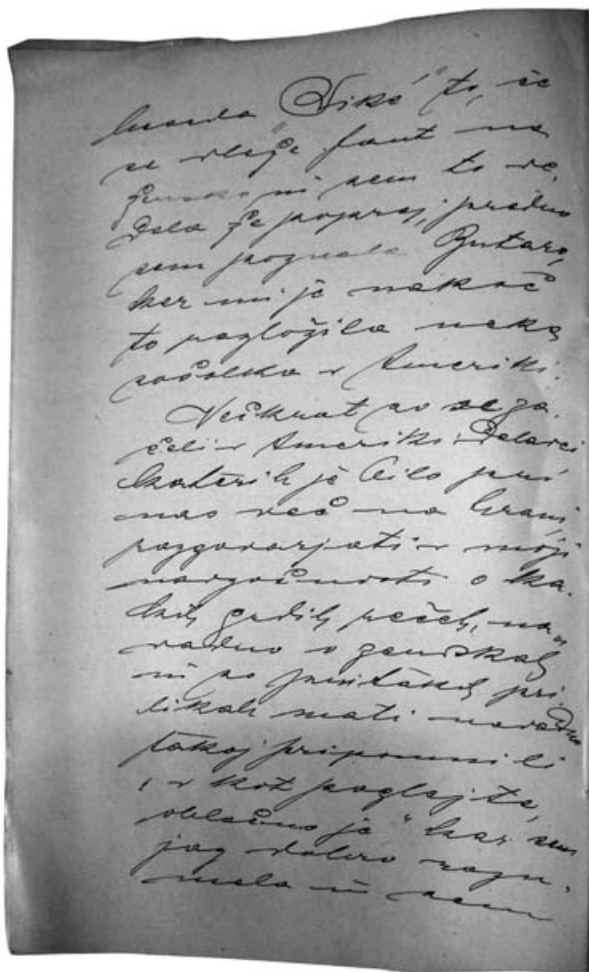 " to, če
se vleže fant na
žensko in sem to ve,
dela že poprej, predno
sem poznala
ker mi je nekoč
to razložila neka
v Ameriki.
Večkrat so se za,
čeli v Ameriki delavci
katerih je bilo pri
nas več na hrani,
razgovarjati v moji
navzočnosti o ka,
kih grdih rečeh, na,
vadno o ženskah
in so pri takih pri
likah mati navadno
takoj pripomnili
" v kot poglejte,
oblačno je" kar sem
jaz dobro razu,
mela in sem